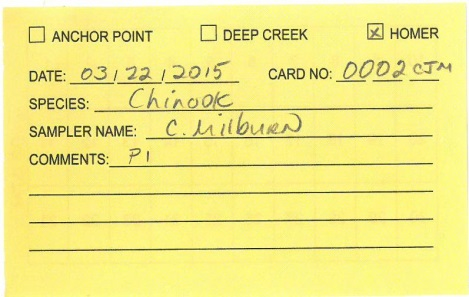 ☐ ANCHOR POINT ☐ DEEP CREEK ☒ HOMER
DATE: 03/22/2015 CARD NO: 0002 CJM
SPECIES: Chinook
SAMPLER NAME: C. Milburn
COMMENTS: P1